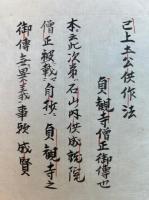 已上土公供作法
貞観寺僧正御傳也
本云此次第石山内供成就院
僧正被載自抄貞観寺之
御傳無異義事歟成賢